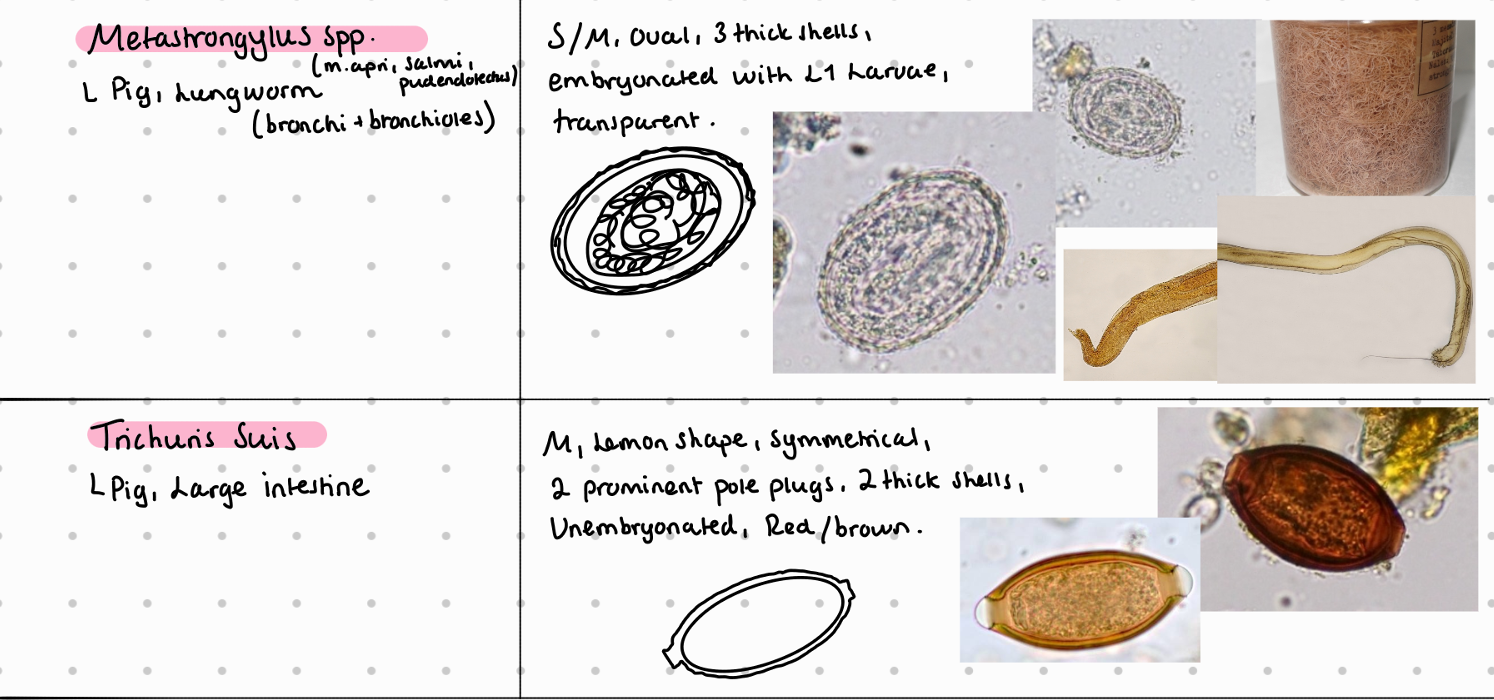 Metastrongylus Spp.
(m.apri, Salmi,
pudendotectus)
L Pig, Lungworm
(bronchi + bronchioles)
S/M, Oval, 3 thick shells,
embryonated with L1 Larvae,
transparent.
Trichuris Suis
L Pig, Large intestine
M, Lemon shape, Symmetrical,
2 prominent pole plugs. 2 thick shells,
Unembryonated, Red/brown.